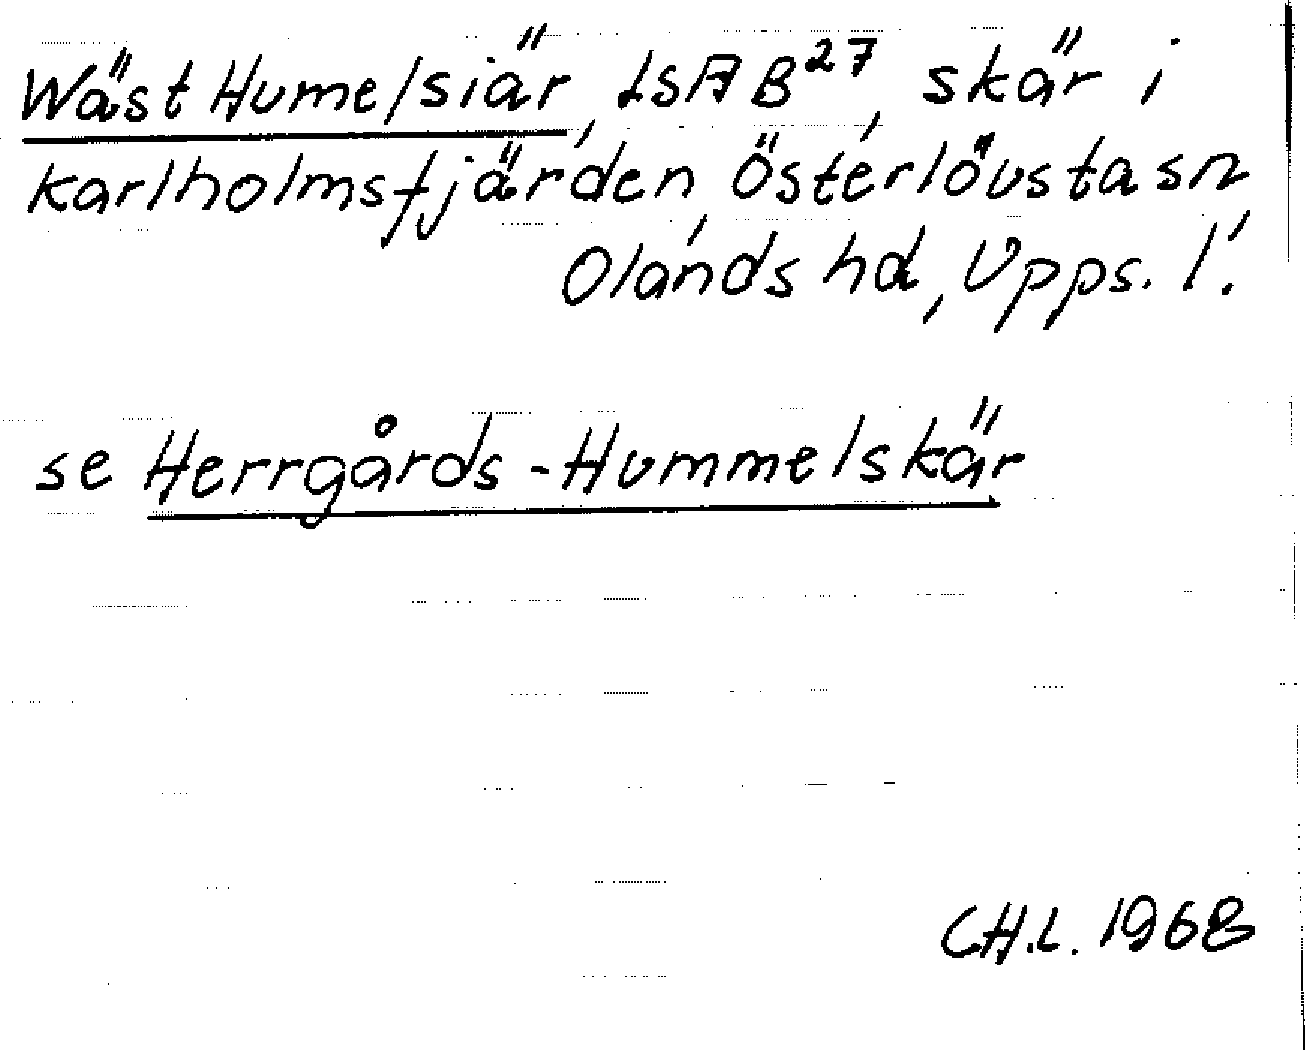 Wäst Humelsiär, LSA B27, skär i
Karlholmsfjärden, Österlövsta sn,
Olands hd, Upps. l.
se Herrgårds-Hummelskär
CH.L. 1968